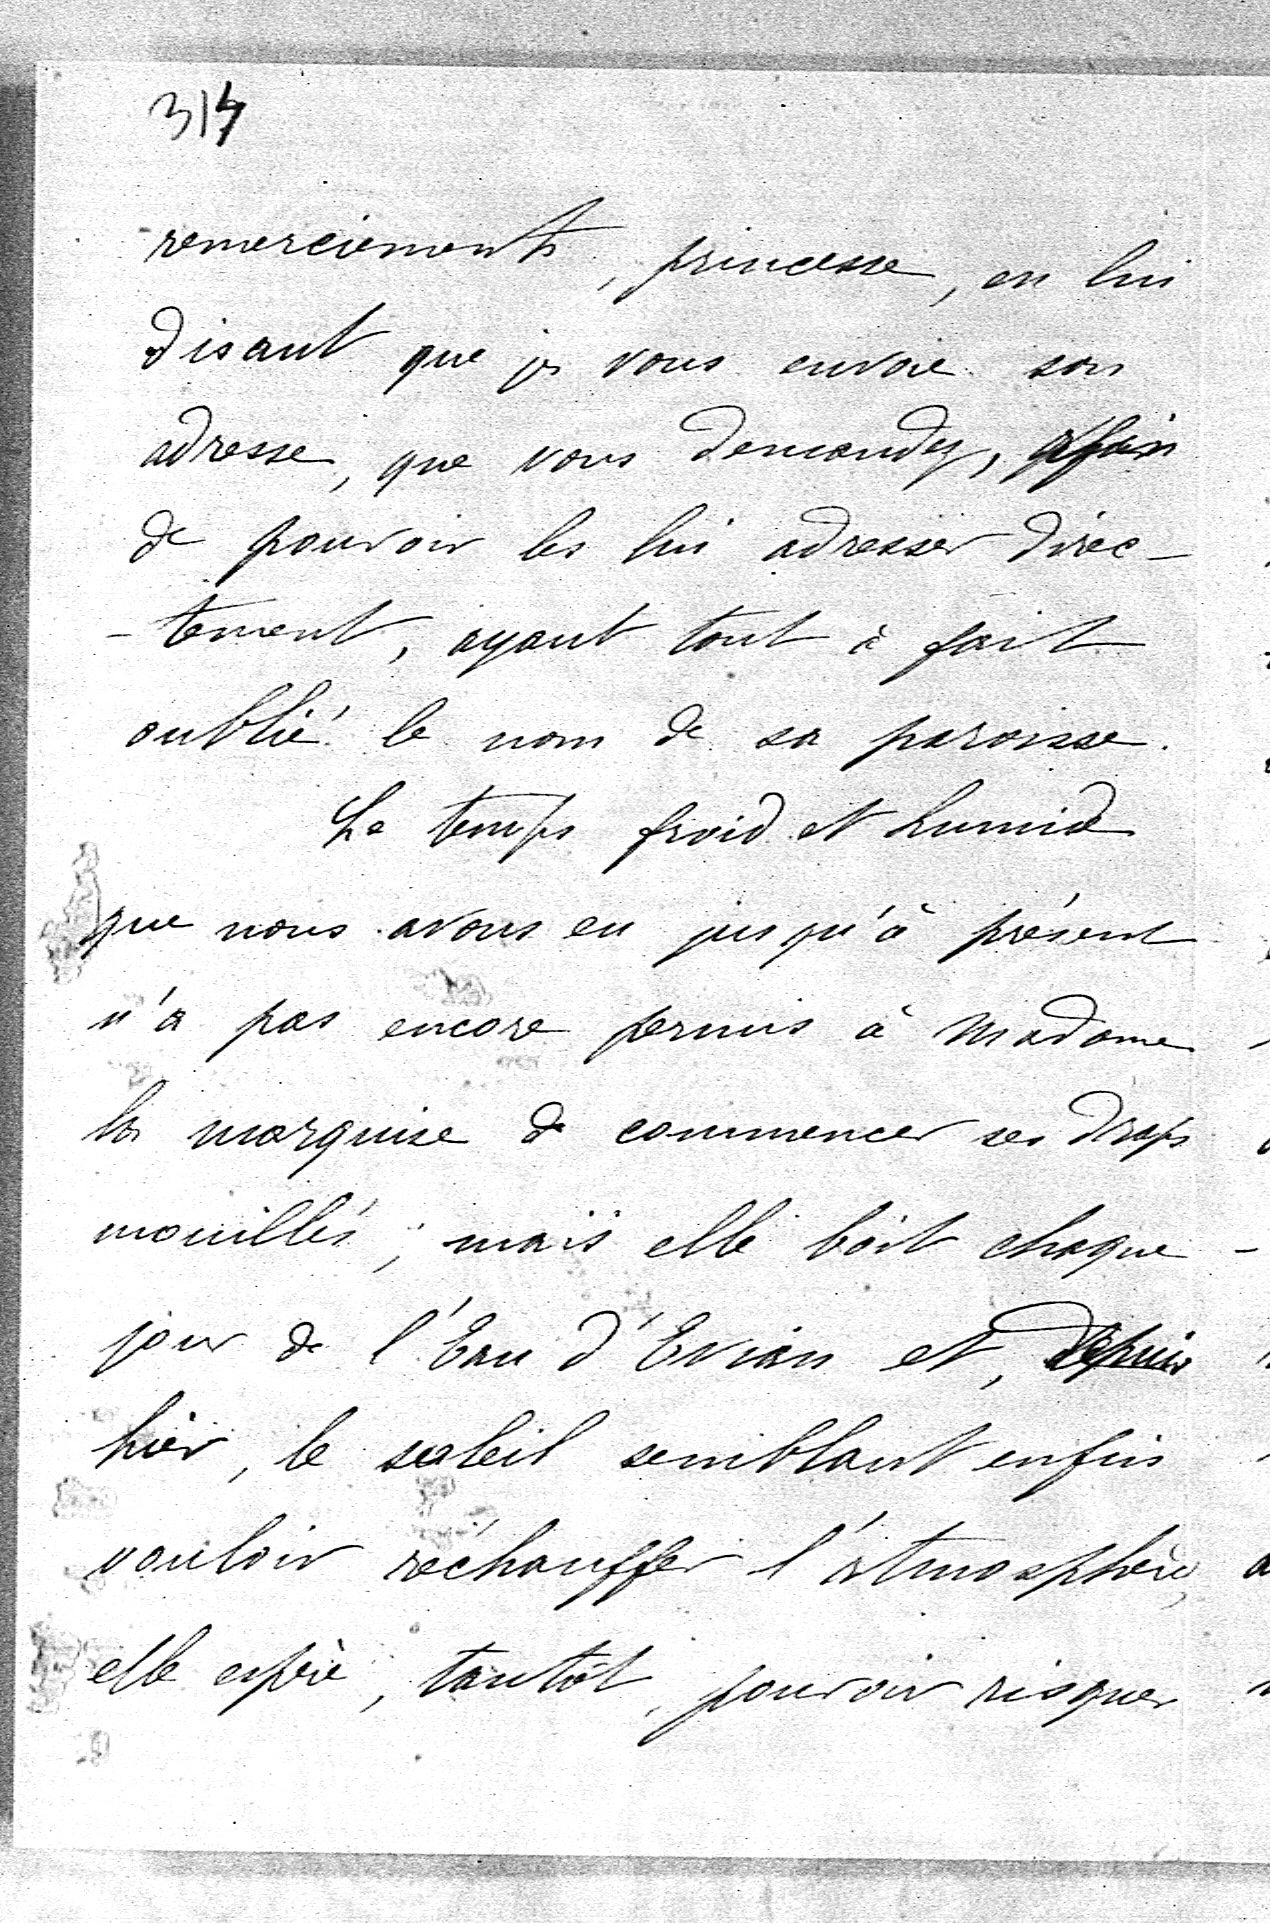 314
remerciements, princesse, en lui
disant que je vous envoie son
adresse, que vous demandez, affin
de pouvoir les lui adresser direc-
-tement, ayant tout à fait
oublié le nom de sa paroisse.
Le temps froid et humide
que nous avons eu jusqu'à présent
n'a pas encore permis à Madame
la marquise de commencer ses draps
mouillés; mais elle boit chaque
jour de l'Eau d'Evian et, depuis
hier, le soleil semblant enfin
vouloir réchauffer l'atmosphère,
elle espère, tantôt, pouvoir risquer